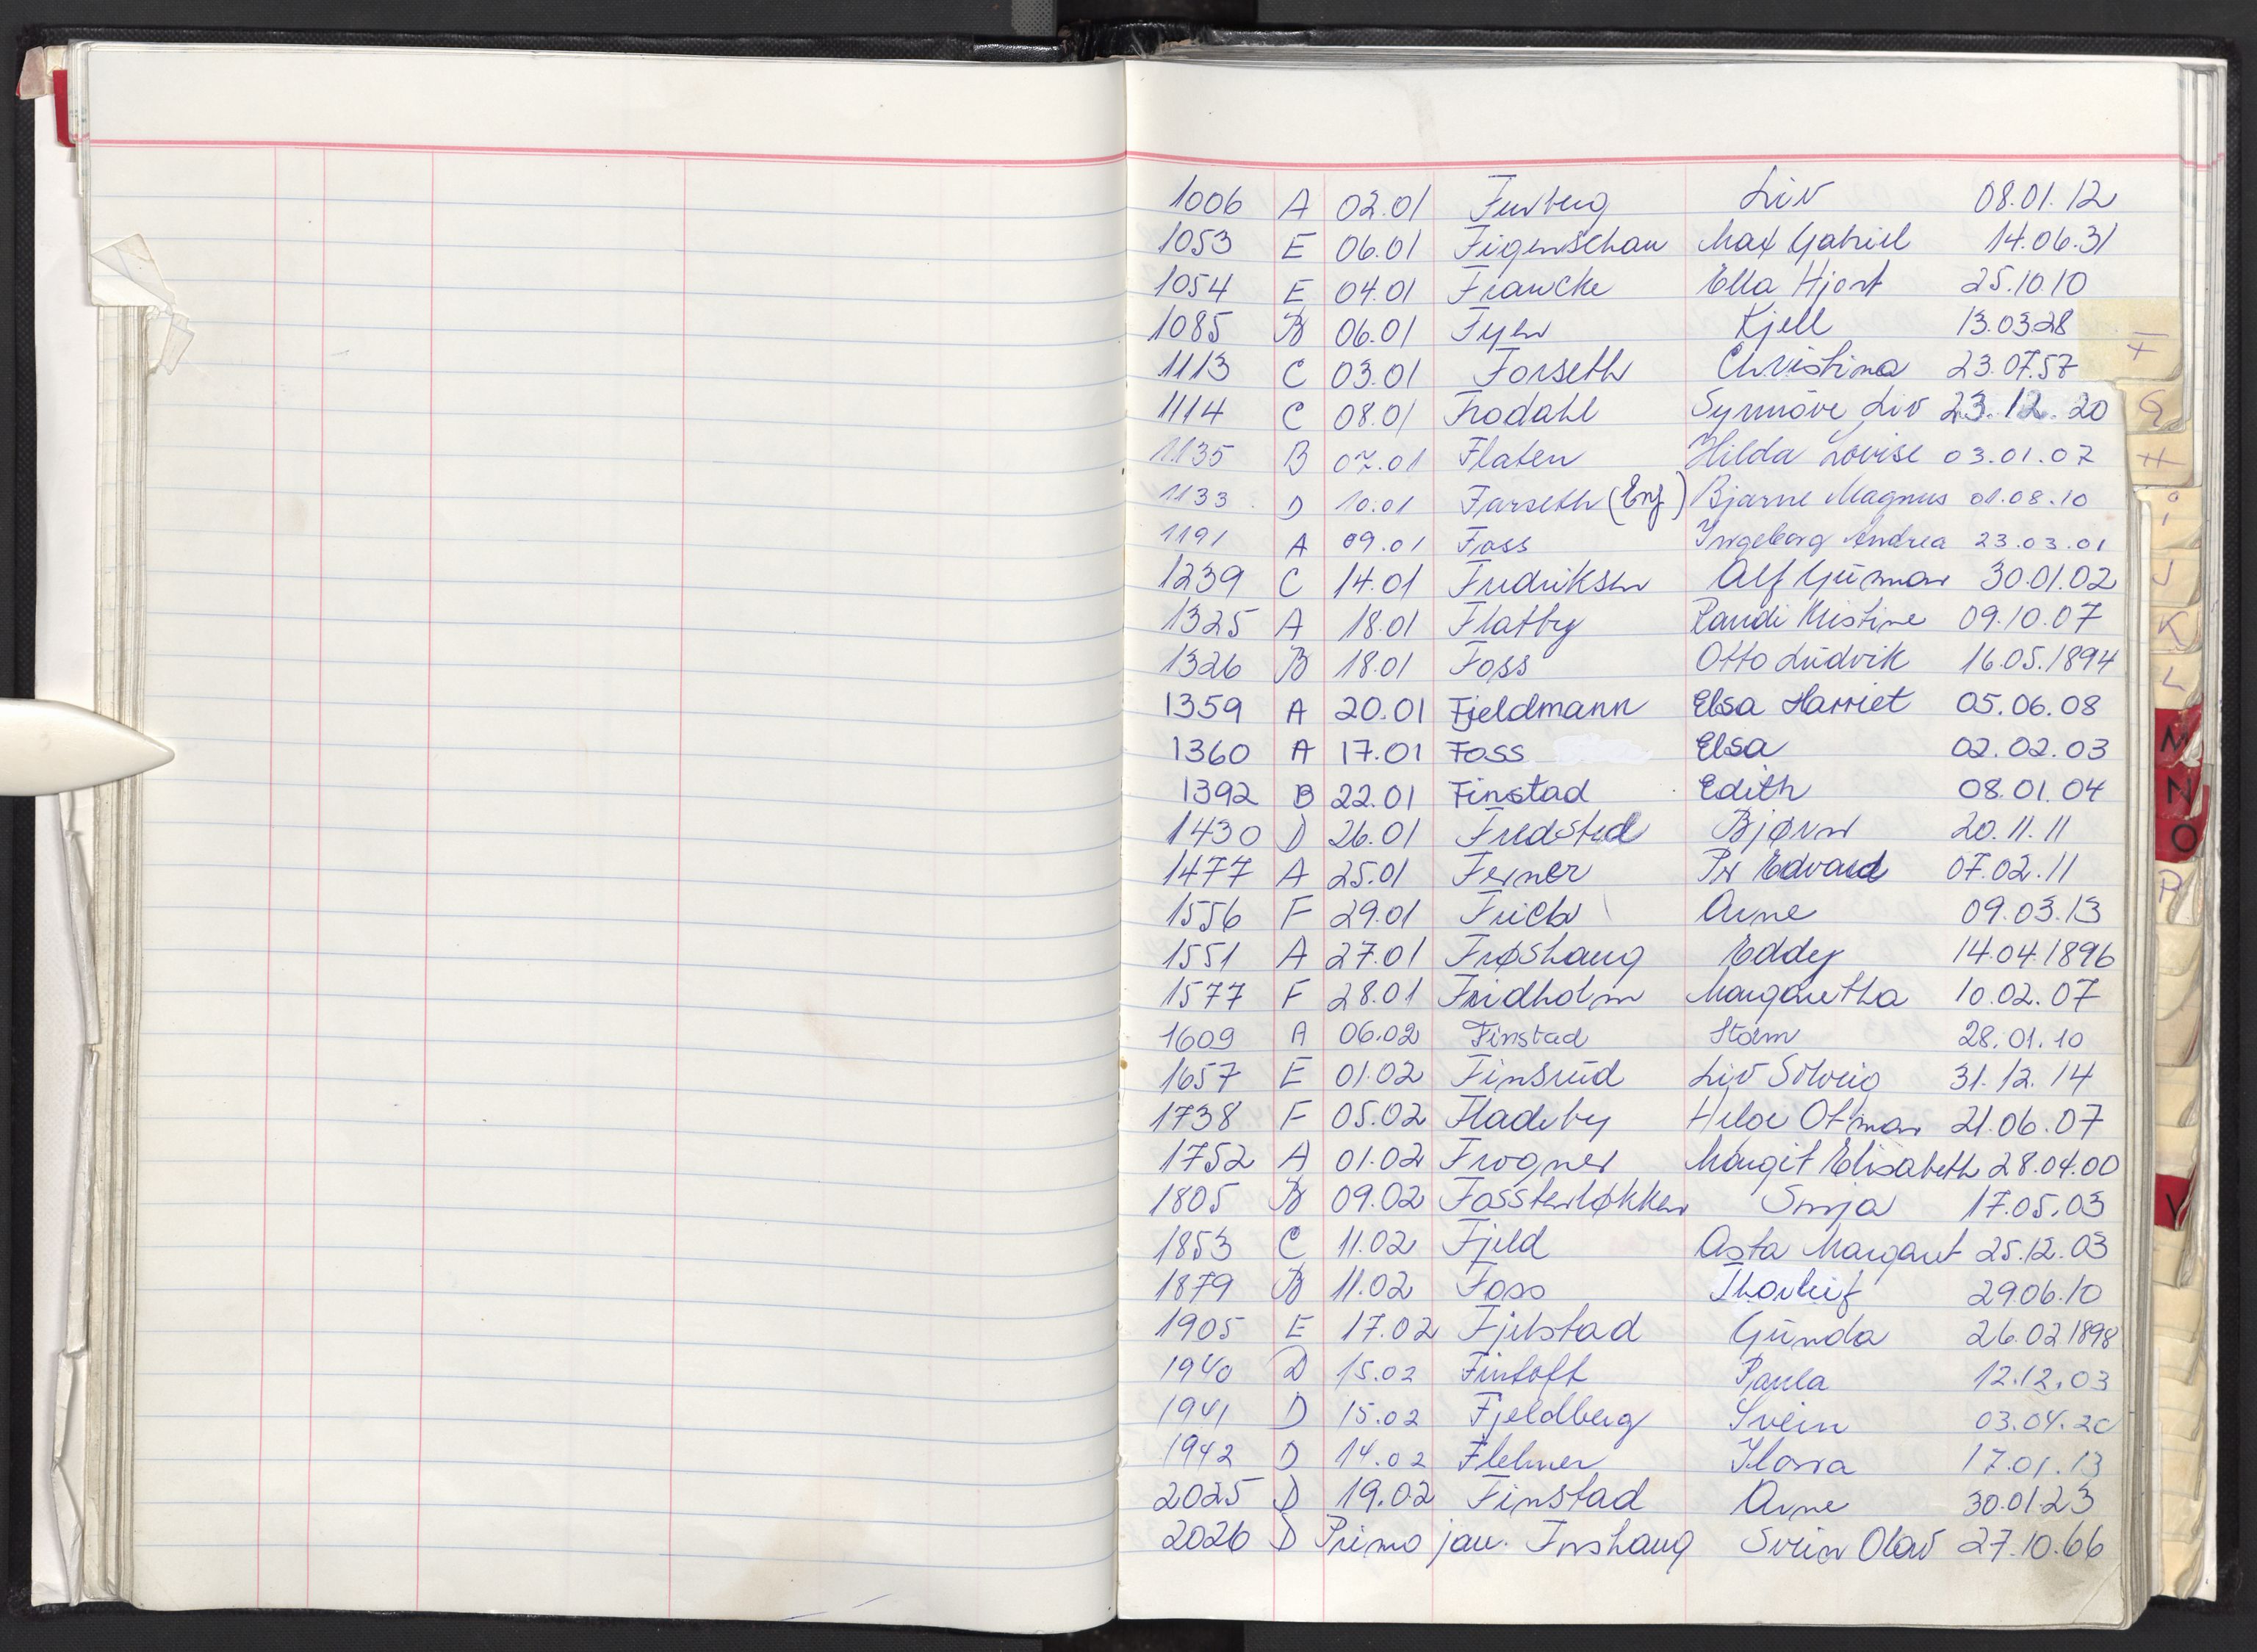 1006 A 02.01 Furberg Liv 08.01.12
1053 E 06.01 Figenschau Max Gabriel 14.06.31
1054 E 04.01 Francke Ella Hjort 25.10.10
1085 B 06.01 Fyen Kjell 13.03.28
1113 C 03.01 Forseth Christina 23.07.57
1114 C 08.01 Frodahl Synnöve Liv 23.12.20
1135 B 07.01 Flaten Hilda Lovise 03.01.07
1133 D 10.01 Farseth (Eng) Bjarne Magnus 01.08.10
1191 A 09.01 Foss Ingeborg Andrea 23.03.01
1239 C 14.01 Fredriksen Alf Gunnar 30.01.02
1325 A 18.01 Flatby Randi Kristine 09.10.07
1326 B 18.01 Foss Otto Ludvik 16.05.1894
1359 A 20.01 Fjeldmann Elsa Harriet 05.06.08
1360 A 17.01 Foss Elsa 02.02.03
1392 B 22.01 Finstad Edith 08.01.04
1430 D 26.01 Fredsted Bjørn 20.11.11
1477 A 25.01 Ferner Per Edvard 07.02.11
1556 F 29.01 Arne 09.03.13
1551 A 27.01 Frøshaug Eddy 14.04.1896
1577 F 28.01 Fridholm Margaretha 10.02.07
1609 A 06.02 Finstad Storm 28.01.10
1657 E 01.02 Finsrud Liv Solveig 31.12.14
1738 F 05.02 Fladeby Helge Otmar 21.06.07
1752 A 01.02 Frogner Margit Elisabeth 28.04.00
1805 B 09.02 Fossterløkken Sonja 17.05.03
1853 C 11.02 Fjeld Asta Margaret 25.12.03
1879 B 11.02 Foss Thorleif 29.06.10
1905 E 17.02 Fjelstad Gunda 26.02.1898
1940 D 15.02 Fintoft Paula 12.12.03
1941 D 15.02 Fjeldberg Svein 03.04.20
1942 D 14.02 17.01.13
2025 D 19.02 Finstad Arne 30.01.23
2026 D Primo jan. Svein Olav 27.10.66
F
G
H
I
J
K
L
M
N
O
P
V